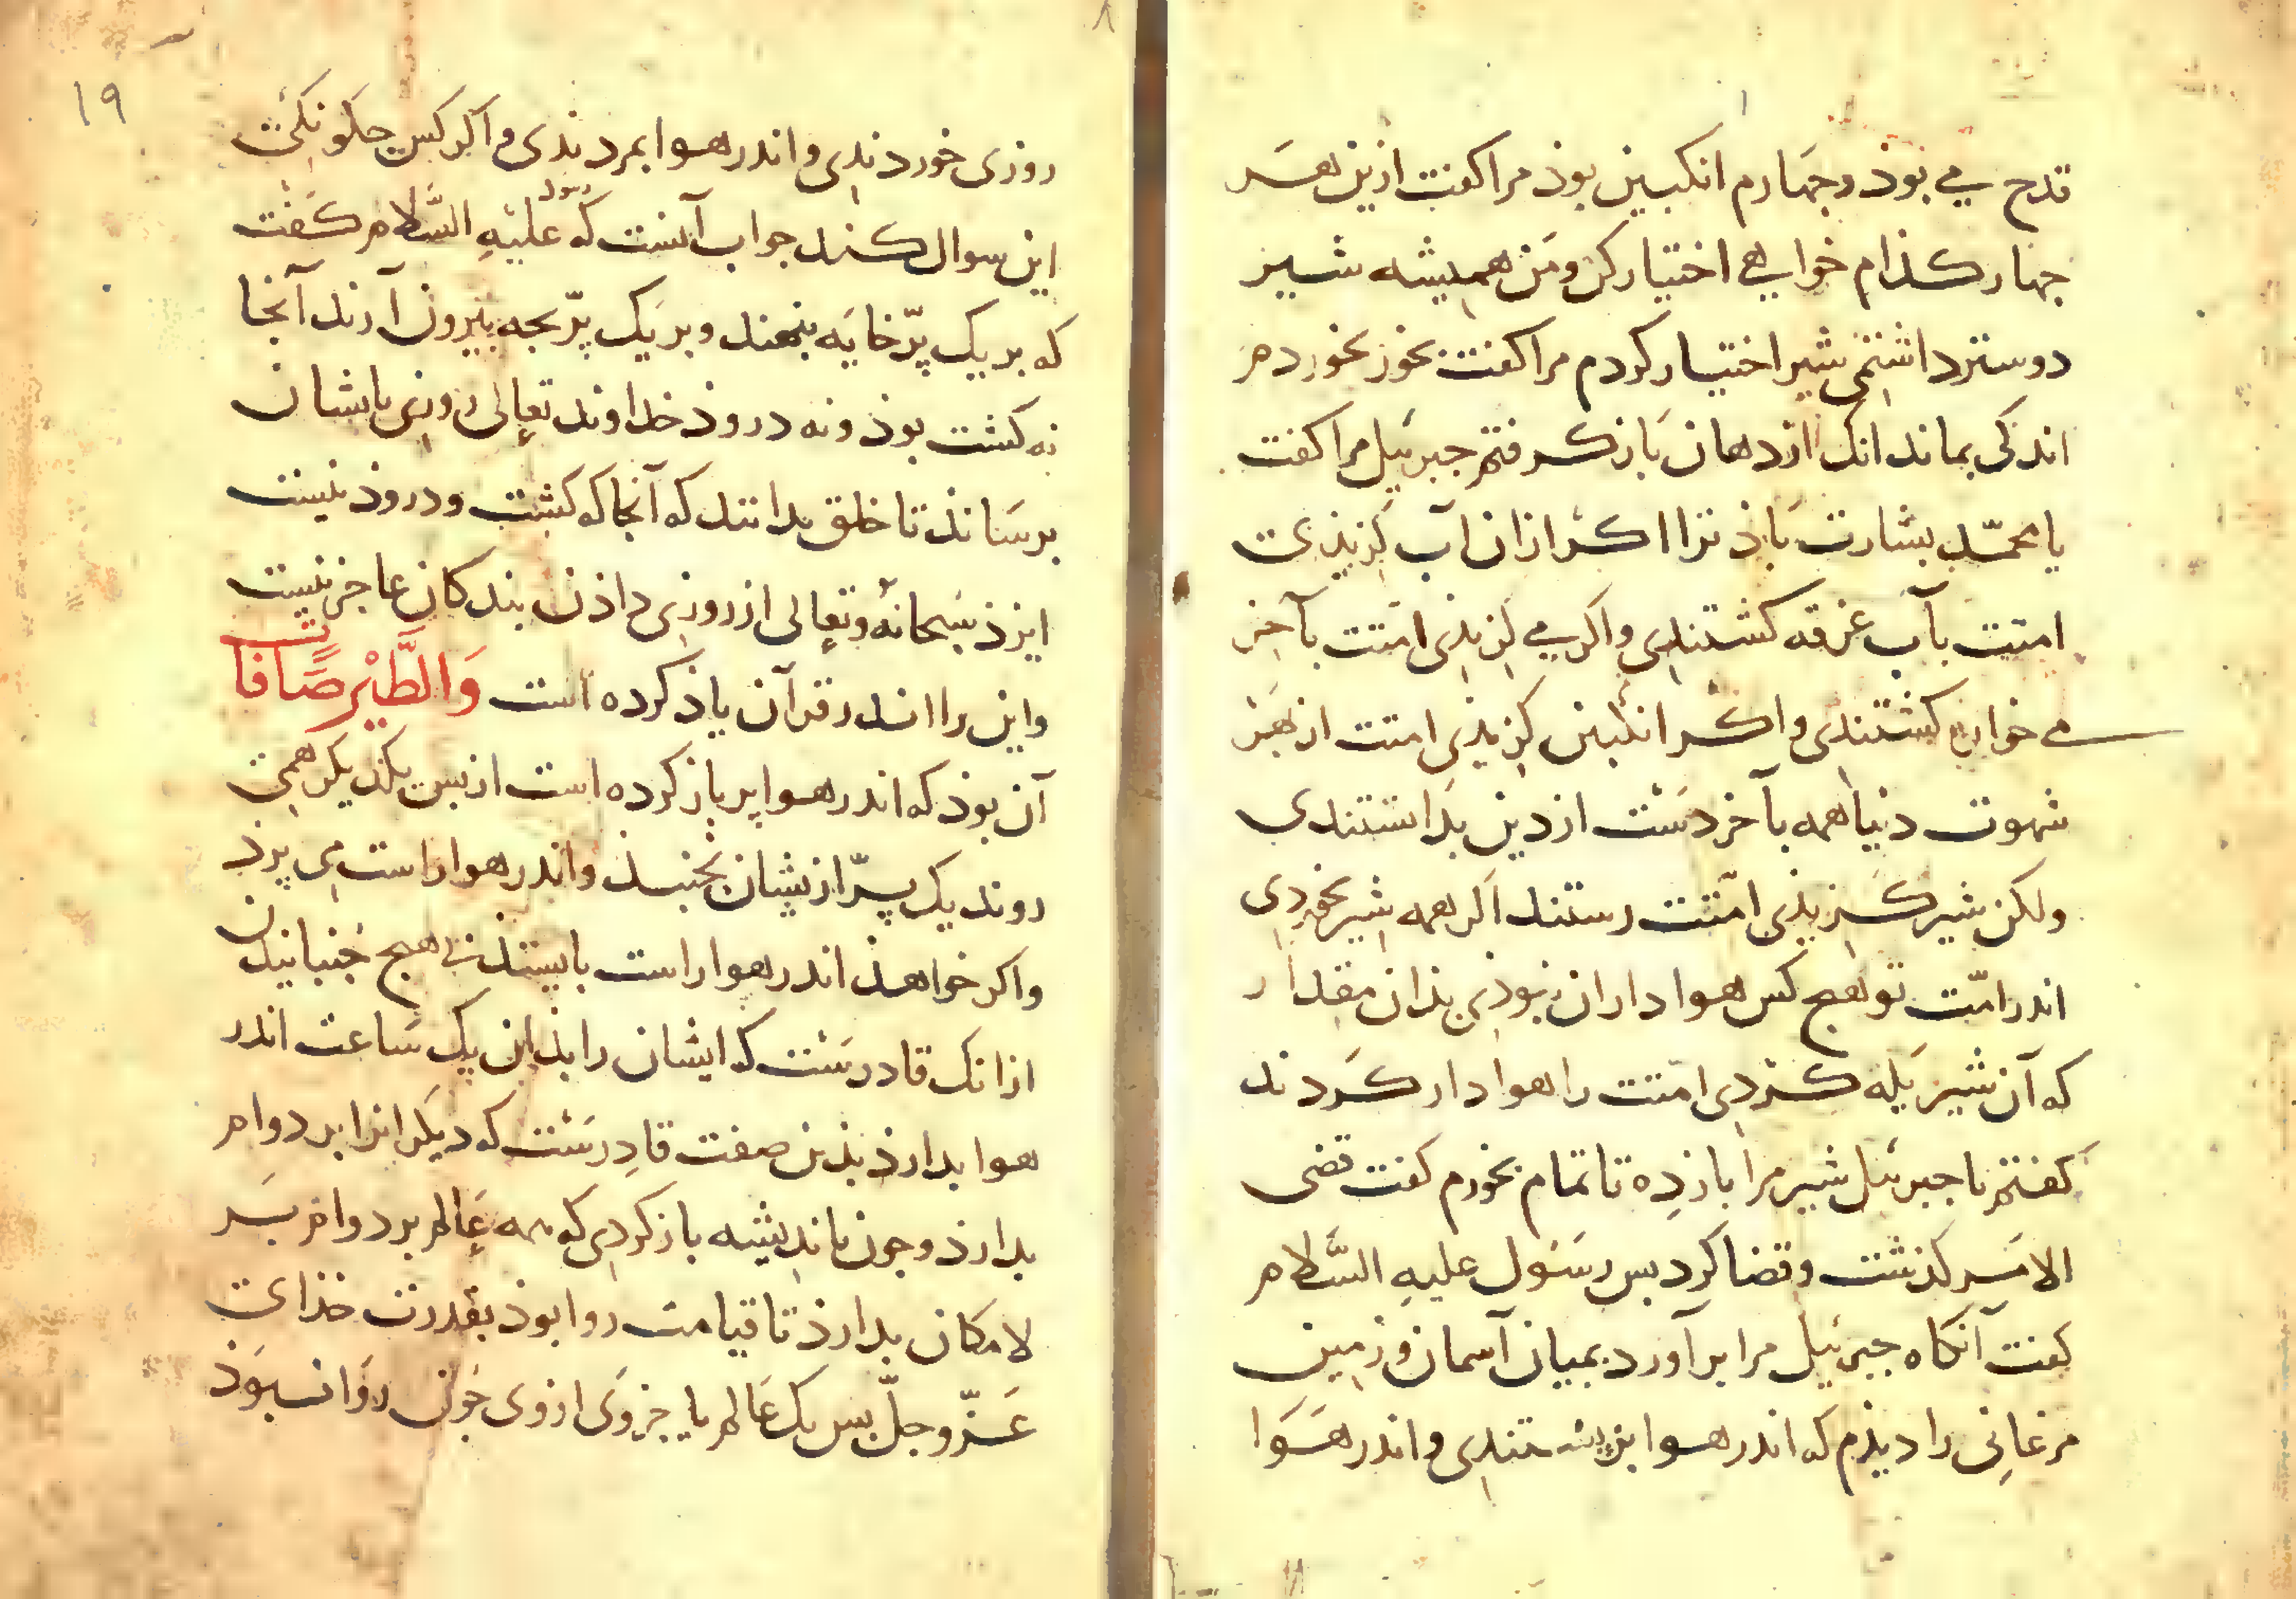 قدح می بوذ وجهارم انکبین بوذ مرا کفت ازین هـر
جهار کذام خواهی اختیار کن ومن همیشه شیر
دوستر داشتمی شیر اختیار کردم مرا کفت بخور بخوردم
اندکی بماند انک از دهان باز کرفتم جبرئیل مرا کفت
یا محمّد بشارت باذ ترا اکر ازان آب کزیذی
امتت بآب غرقه کشتندی واکر می کزیذی امتت بآخر
می خواره کشتندی واکر انکبین کزیذی امتت از بهر
شهوت دنیا همه بآخر دست از دین بداشتندی
ولکن شیر کزیذی امّتت رستند اکر همه شیر بخوردی
اندر امّت تو هیج کس هوا داران نبوذی بذان مقدار
که آن شیر یله کردی امّتت را هوا دار کردند
کفتم یا جبرئیل شیر مرا بازده تا تمام بخورم کفت قضی
الامر کذشت وقضا کرد بس رسول علیه السّلام
کفت آنکاه جبرئیل مرا برآورد بمیان آسمان وزمین
مرغانی را دیذم که اندر هوا بزیستندی واندر هوا
۸
۱۹
روزی خوردندی واندر هوا بمردندی واکر کس جکونکی
این سوال کند جواب آنست که رسول علیه السّلام کفت
که بر یک پرّ خایه بنهند وبر یک پرّ بجه بیرون آرند آنجا
نه کشت بوذ ونه دروذ خداوند تعالی روزی بایشان
برساند تا خلق بدانند که آنجا که کشت ودروذ نیست
ایزذ سبحانه وتعالی از روزی داذن بندکان عاجز نیست
واین را اندر قرآن یاذ کرده است وَالطَّیْر صَافَّات
آن بوذ که اندر هوا پر باز کرده است از بس یکدیکر همی
روند یک پرّ ازیشان نجنبد واندر هوا راست می پرذ
واکر خواهذ اندر هوا راست بایستد بی هیج جنبانیدن
ازانک قادرست که ایشان را بذان یک ساعت اندر
هوا بدارذ بذین صفت قادرست که دیکرانرا بر دوام
بدارذ وجون باندیشه باز کردی که همه عالم بر دوام بسر
لامکان بدارذ تا قیامت روا بوذ بقدرت خذای
عزّوجلّ بس یک عالم یا جزوی ازوی جون روا نبوذ